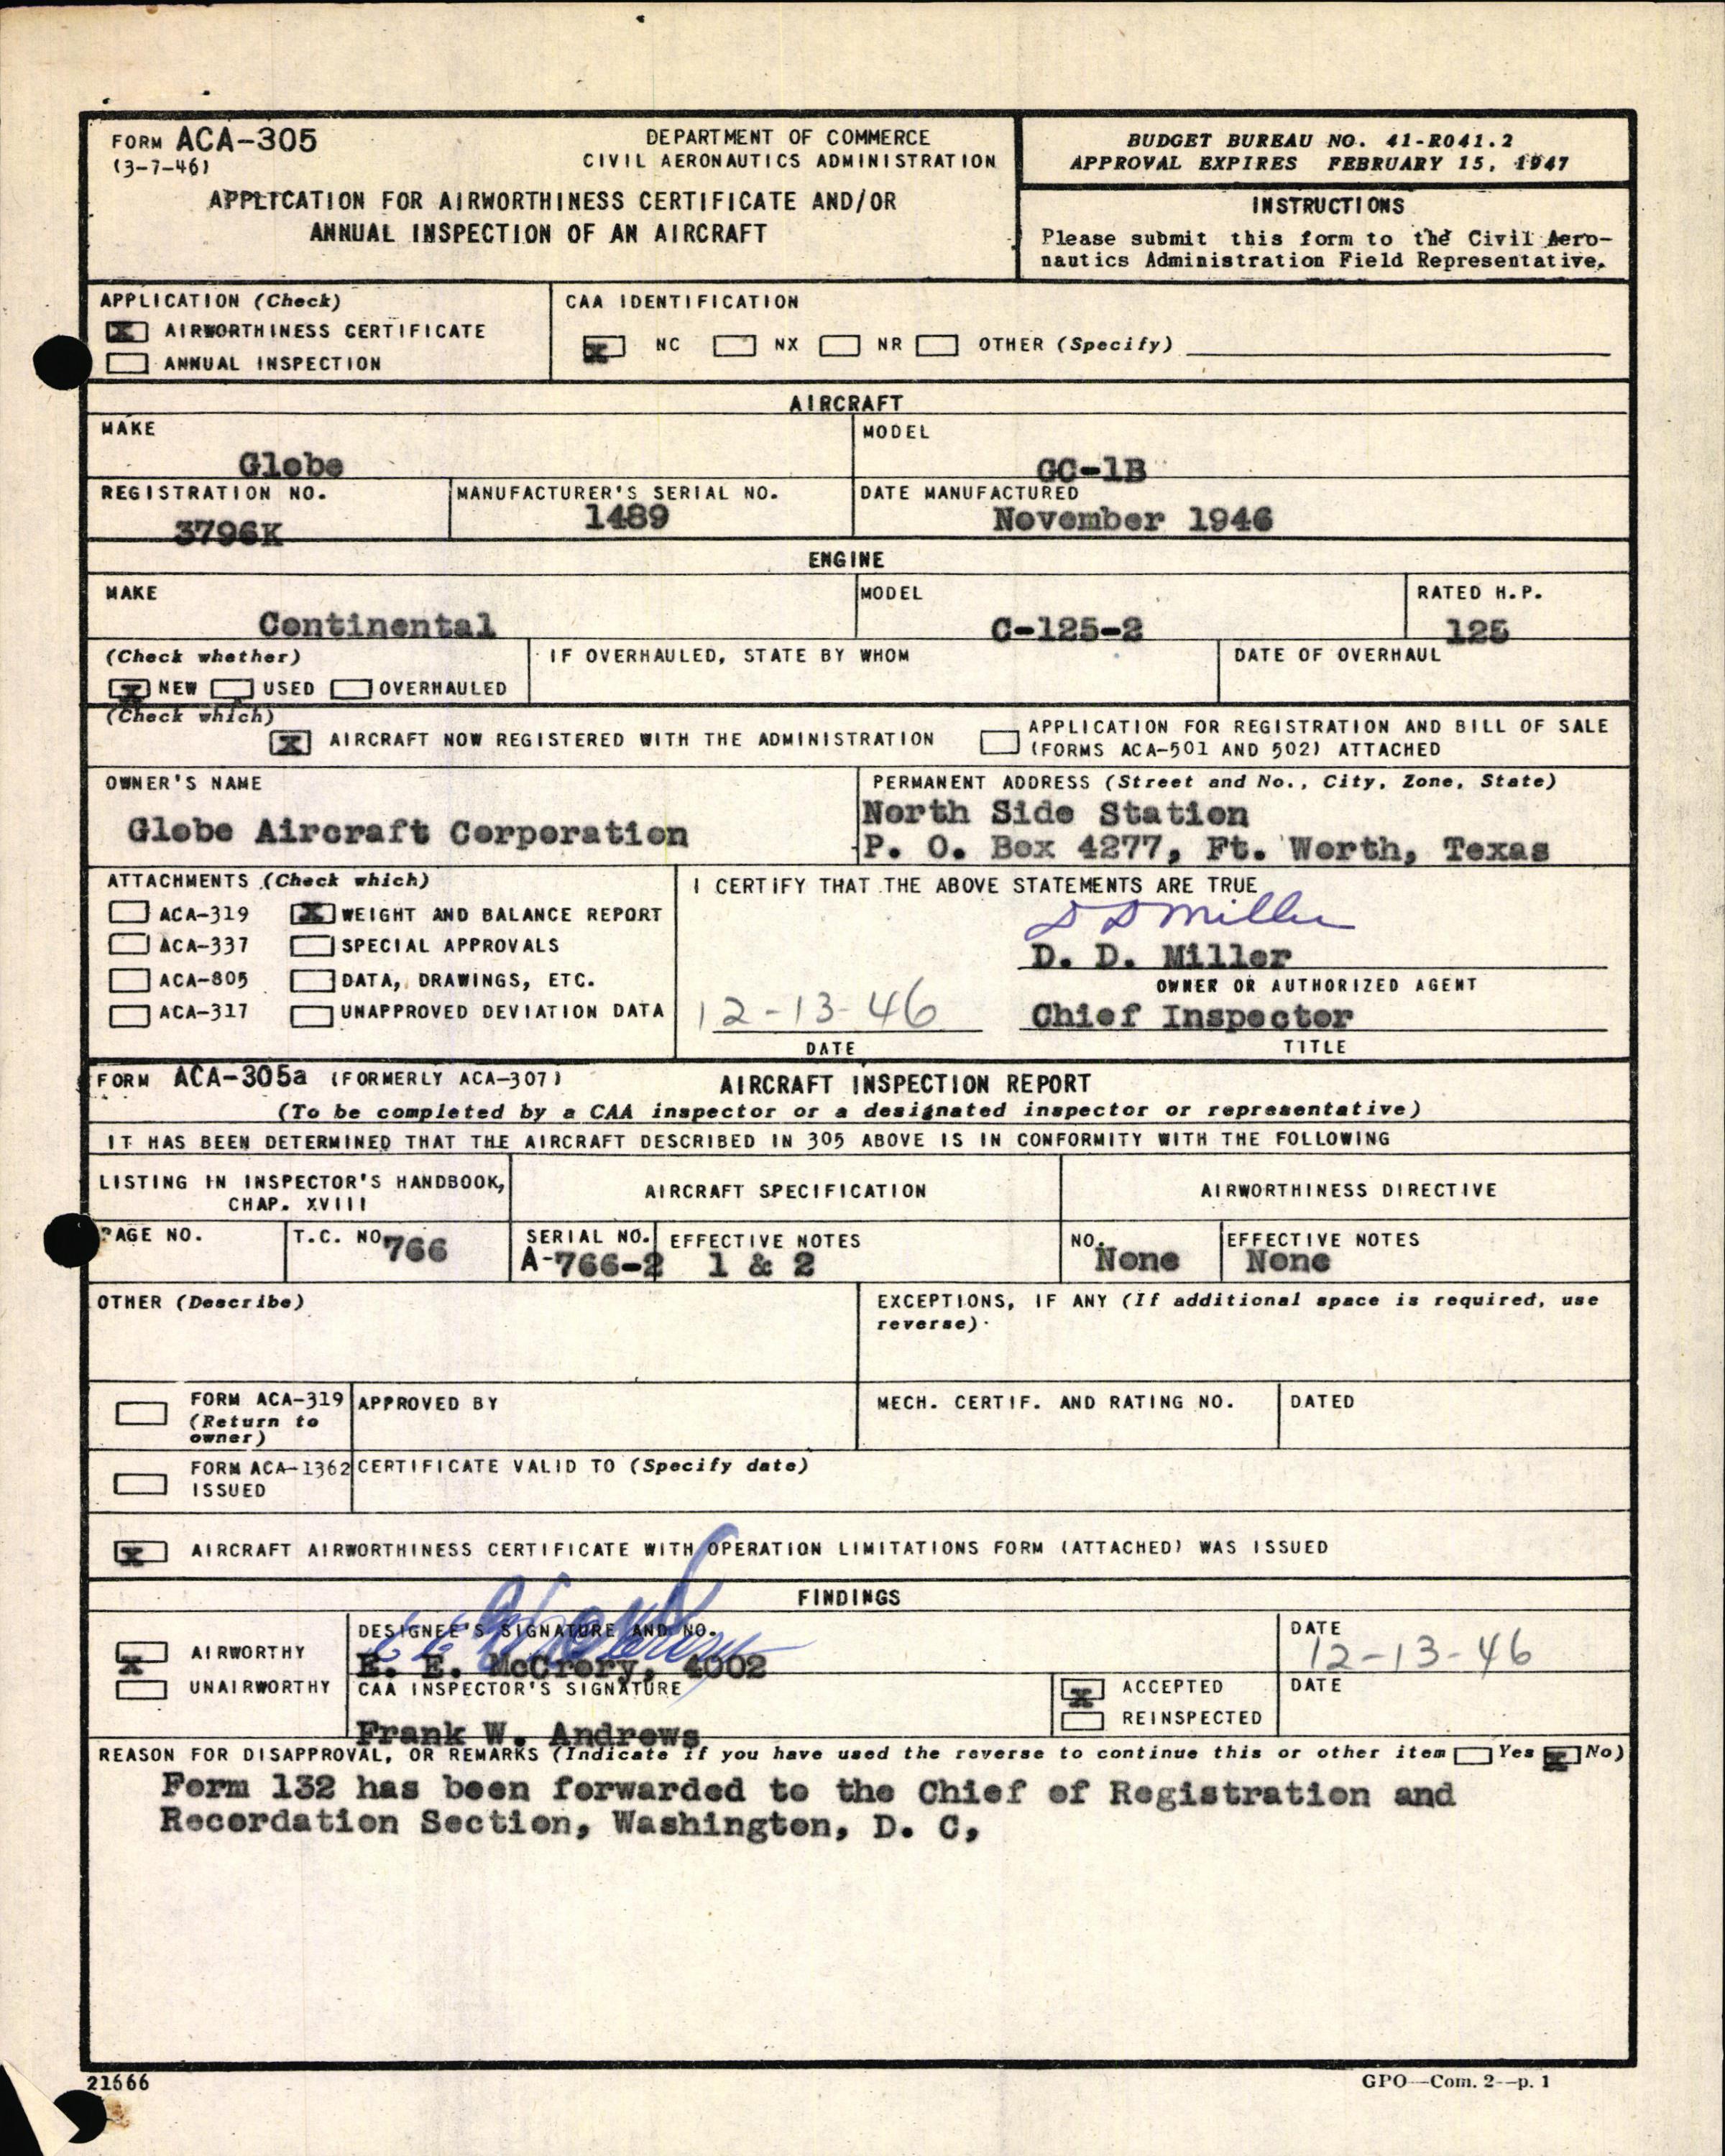 FORM ACA-305
(3-7-46)
DEPARTMENT OF COMMERCE
CIVIL AERONAUTICS ADMINISTRATION
APPLICATION FOR AIRWORTHINESS CERTIFICATE AND/OR
ANNUAL INSPECTION OF AN AIRCRAFT
BUDGET BUREAU NO. 41-R041.2
APPROVAL EXPIRES FEBRUARY 15, 1947
INSTRUCTIONS
Please submit this form to the Civil Aero-
nautics Administration Field Representative.
APPLICATION (Check)
X AIRWORTHINESS CERTIFICATE
ANNUAL INSPECTION
CAA IDENTIFICATION
X NC NX NR OTHER (Specify)
AIRCRAFT
MAKE
Globe
MODEL
GC-1B
REGISTRATION NO.
3796K
MANUFACTURER'S SERIAL NO.
1489
DATE MANUFACTURED
November 1946
ENGINE
MAKE
Continental
MODEL
C-125-2
RATED H.P.
125
(Check whether)
X NEW USED OVERHAULED
IF OVERHAULED, STATE BY WHOM
DATE OF OVERHAUL
(Check which)
X AIRCRAFT NOW REGISTERED WITH THE ADMINISTRATION
APPLICATION FOR REGISTRATION AND BILL OF SALE
(FORMS ACA-501 AND 502) ATTACHED
OWNER'S NAME
Globe Aircraft Corporation
PERMANENT ADDRESS (Street and No., City, Zone, State)
North Side Station
P. O. Box 4277, Ft. Worth, Texas
ATTACHMENTS (Check which)
ACA-319 X WEIGHT AND BALANCE REPORT
ACA-337 SPECIAL APPROVALS
ACA-805 DATA, DRAWINGS, ETC.
ACA-317 UNAPPROVED DEVIATION DATA
I CERTIFY THAT THE ABOVE STATEMENTS ARE TRUE
D D Miller
D. D. Miller
OWNER OR AUTHORIZED AGENT
12-13-46
Chief Inspector
DATE
TITLE
FORM ACA-305a (FORMERLY ACA-307)
AIRCRAFT INSPECTION REPORT
(To be completed by a CAA inspector or a designated inspector or representative)
IT HAS BEEN DETERMINED THAT THE AIRCRAFT DESCRIBED IN 305 ABOVE IS IN CONFORMITY WITH THE FOLLOWING
LISTING IN INSPECTOR'S HANDBOOK,
CHAP. XVIII
AIRCRAFT SPECIFICATION
AIRWORTHINESS DIRECTIVE
PAGE NO.
T.C. NO.
766
SERIAL NO.
A-766-2
EFFECTIVE NOTES
1 & 2
NO.
None
EFFECTIVE NOTES
None
OTHER (Describe)
EXCEPTIONS, IF ANY (If additional space is required, use
reverse).
FORM ACA-319
(Return to
owner)
APPROVED BY
MECH. CERTIF. AND RATING NO.
DATED
FORM ACA-1362
ISSUED
CERTIFICATE VALID TO (Specify date)
X AIRCRAFT AIRWORTHINESS CERTIFICATE WITH OPERATION LIMITATIONS FORM (ATTACHED) WAS ISSUED
FINDINGS
X AIRWORTHY
UNAIRWORTHY
DESIGNEE'S SIGNATURE AND NO.
E. E. McCrory, 4002
DATE
12-13-46
CAA INSPECTOR'S SIGNATURE
Frank W. Andrews
X ACCEPTED
REINSPECTED
DATE
REASON FOR DISAPPROVAL, OR REMARKS (Indicate if you have used the reverse to continue this or other item Yes X No)
Form 132 has been forwarded to the Chief of Registration and
Recordation Section, Washington, D. C,
21666
GPO—Com. 2--p. 1